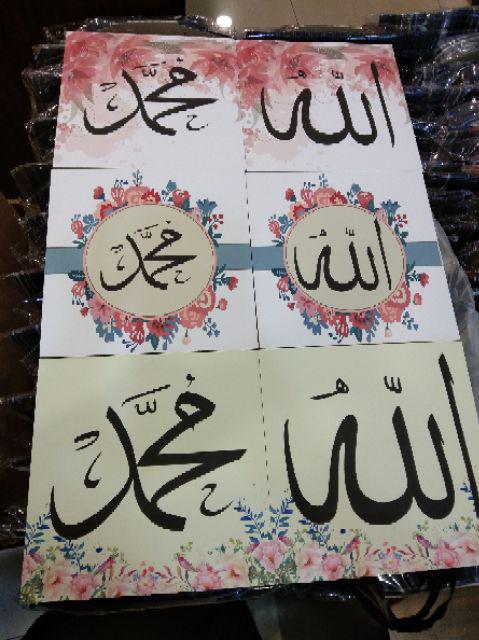 الله محمد
الله محمد
الله محمد